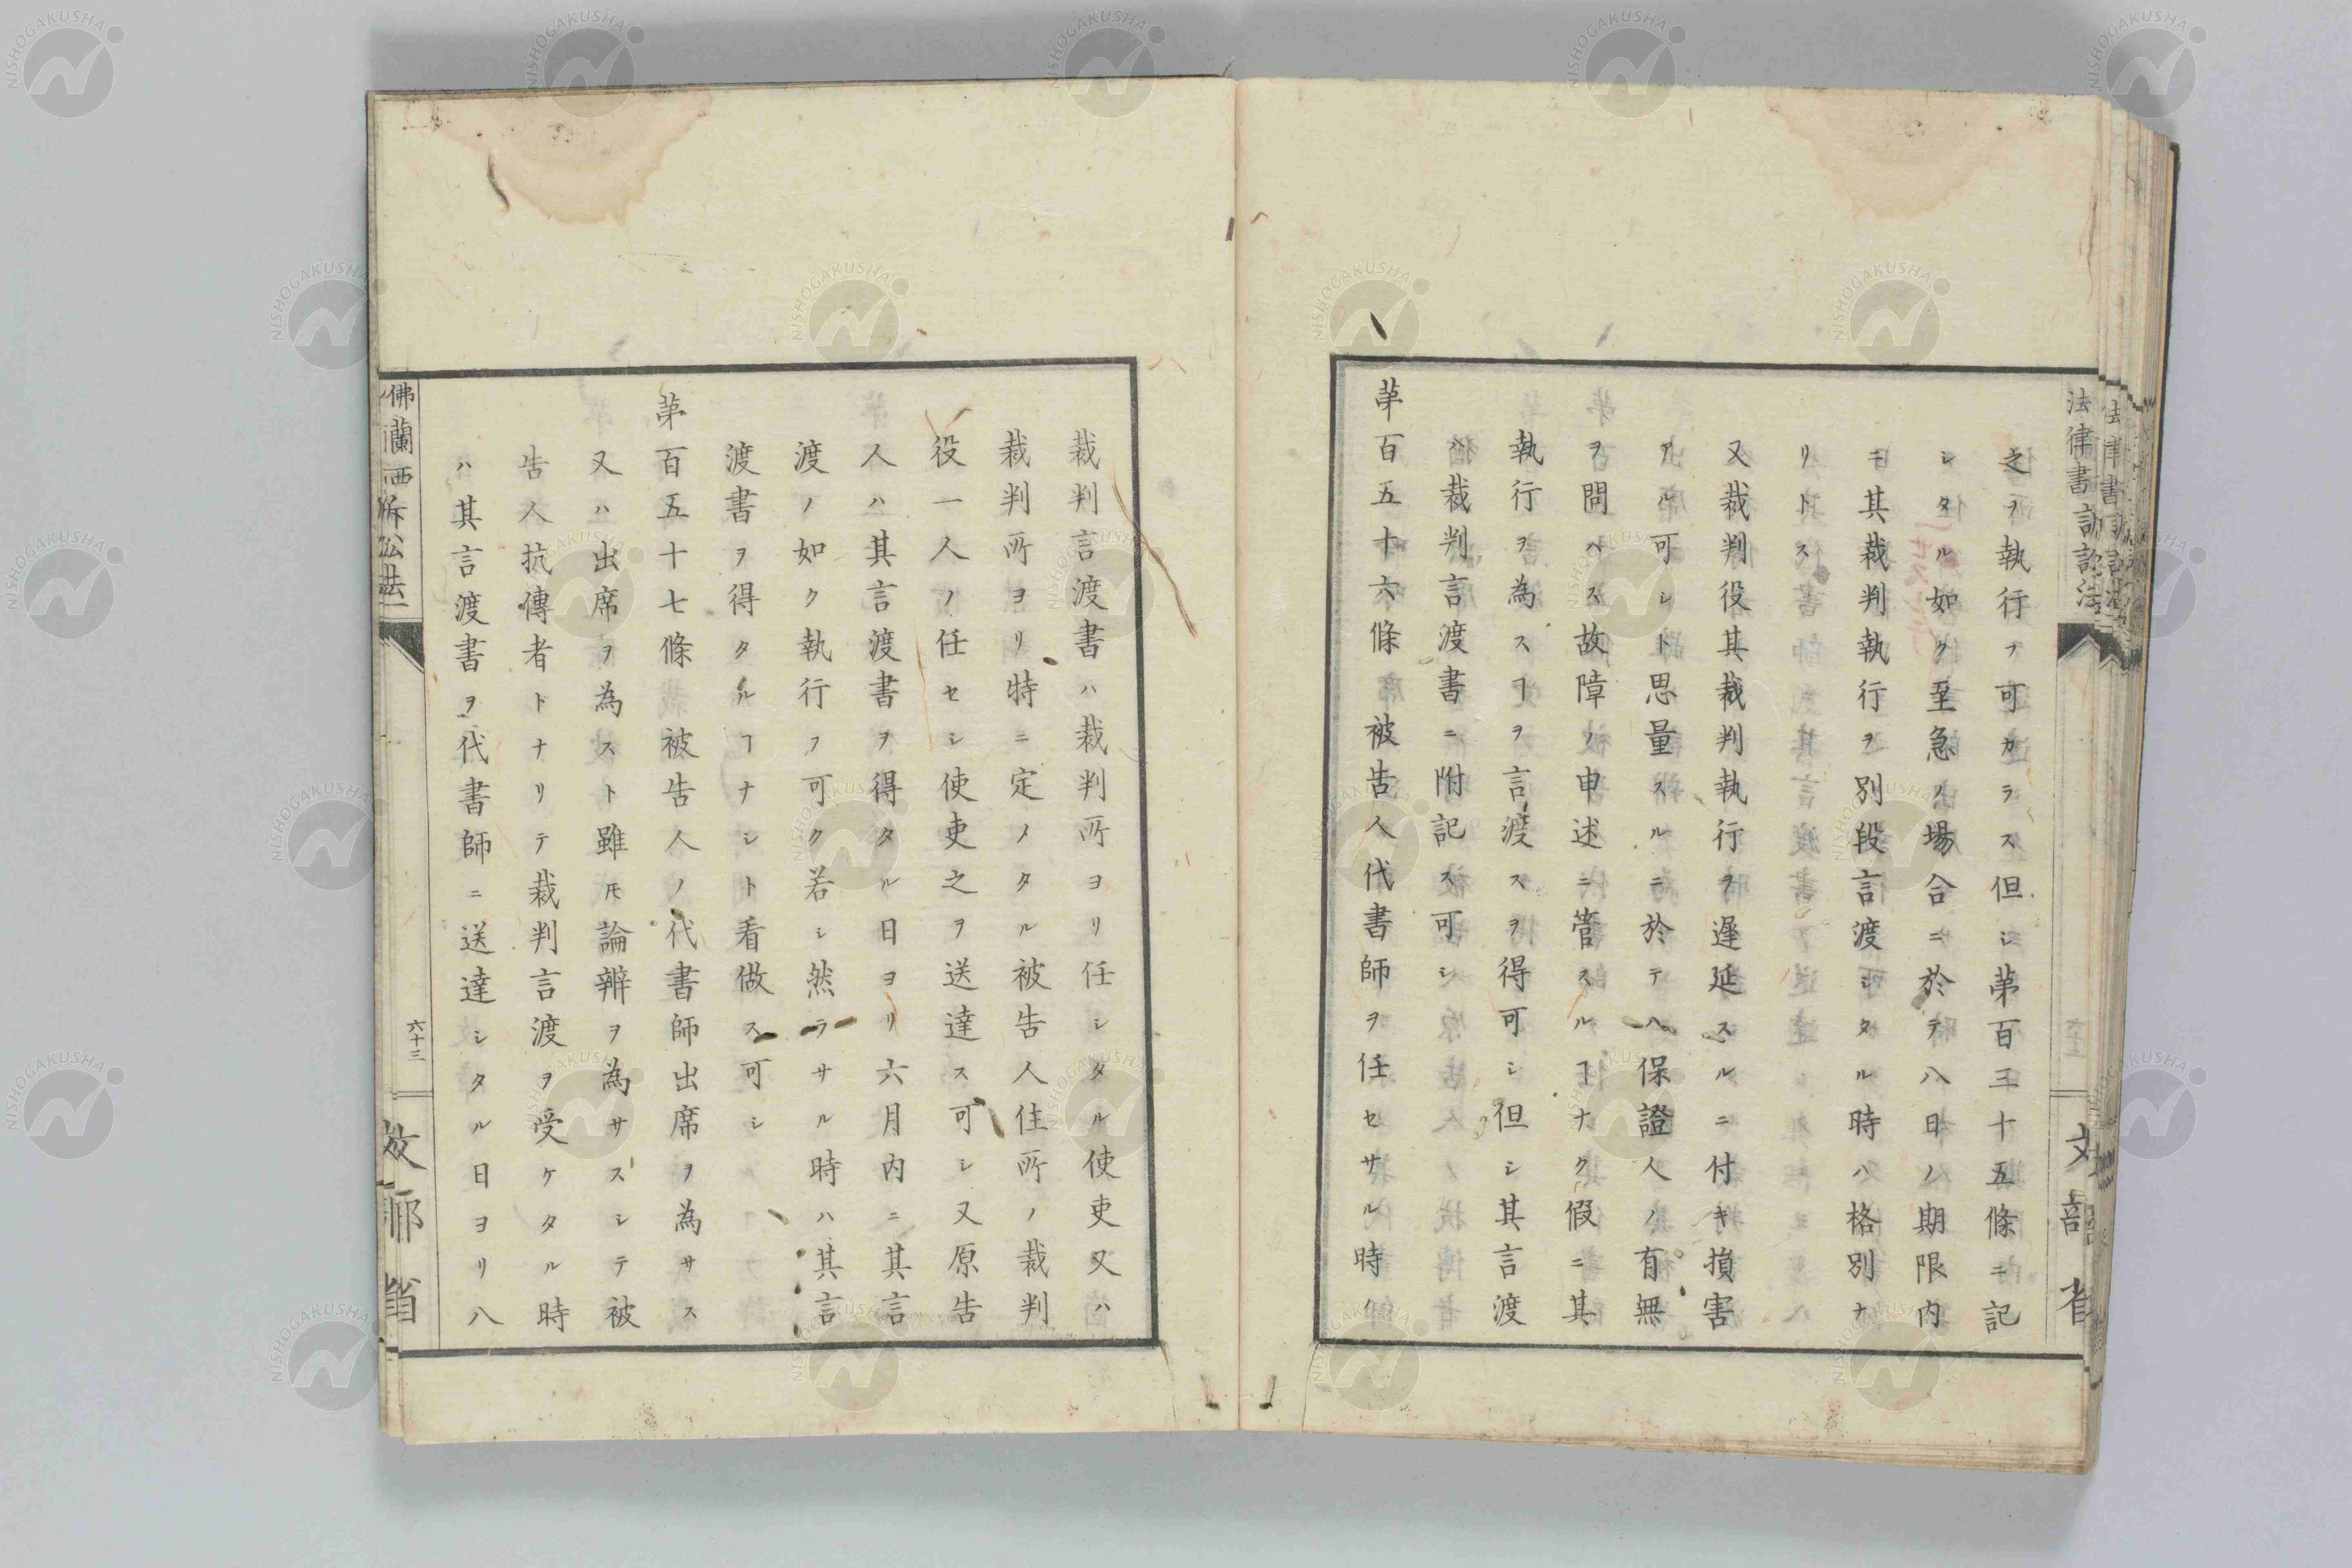 之ヲ執行フ可カラス但シ苐百三十五條ニ記
シタル如ク至急ノ場合ニ於テ八日ノ期限内
ニ其裁判執行ヲ別段言渡シタル時ハ格別ナ
リトス
又裁判役其裁判執行ヲ遲延スルニ付キ損害
アル可シト思量スルニ於テハ保證人ノ有無
ヲ問ハス故障ノ申述ニ管スルヿナク假ニ其
執行ヲ為スヿヲ言渡スヲ得可シ但シ其言渡
ハ裁判言渡書ニ附記ス可シ
苐百五十六條 被告人代書師ヲ任セサル時ノ
法律書訴訟法
文部省
裁判言渡書ハ裁判所ヨリ任シタル使吏又ハ
裁判所ヨリ特ニ定メタル被告人住所ノ裁判
役一人ノ任セシ使吏之ヲ送達ス可シ又原告
人ハ其言渡書ヲ得タル日ヨリ六月内ニ其言
渡ノ如ク執行フ可ク若シ然ラサル時ハ其言
渡書ヲ得タルヿナシト看做ス可シ
苐百五十七條 被告人ノ代書師出席ヲ為サス
又ハ出席ヲ為スト雖𪜈論辨ヲ為サスシテ被
告人抗傳者トナリテ裁判言渡ヲ受ケタル時
ハ其言渡書ヲ代書師ニ送達シタル日ヨリ八
佛蘭西訴訟法
六十三
文部省
NISHOGAKUSHA